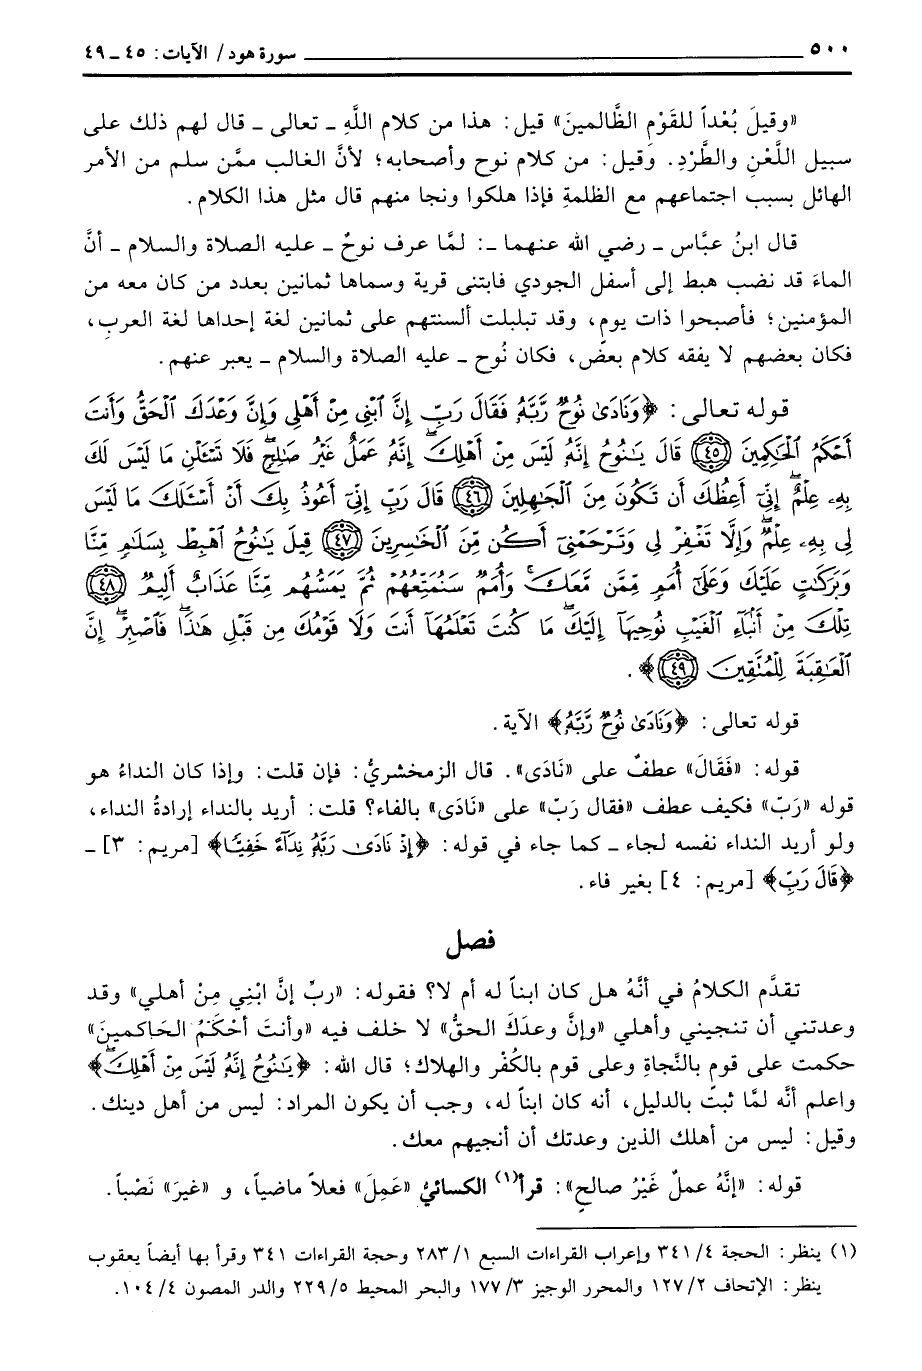 ٥٠٠ سورة هود / الآيات: ٤٥ ـ ٤٩
«وقيلَ بُعْداً للقَوْمِ الظَّالمينَ» قيل: هذا من كلام اللَّهِ ـ تعالى ـ قال لهم ذلك على
سبيل اللَّعْنِ والطَّرْدِ. وقيل: من كلام نوح وأصحابه؛ لأنَّ الغالب ممَّن سلم من الأمر
الهائل بسبب اجتماعهم مع الظلمةِ فإذا هلكوا ونجا منهم قال مثل هذا الكلام.
قال ابنُ عبَّاس ـ رضي الله عنهما ـ: لمَّا عرف نوحٌ ـ عليه الصلاة والسلام ـ أنَّ
الماءَ قد نضب هبط إلى أسفل الجودي فابتنى قرية وسماها ثمانين بعدد من كان معه من
المؤمنين؛ فأصبحوا ذات يوم، وقد تبلبلت ألسنتهم على ثمانين لغة إحداها لغة العربِ،
فكان بعضهم لا يفقه كلام بعض، فكان نُوح ـ عليه الصلاة والسلام ـ يعبر عنهم.
قوله تعالى: ﴿وَنَادَىٰ نُوحٌ رَّبَّهُۥ فَقَالَ رَبِّ إِنَّ ٱبْنِى مِنْ أَهْلِى وَإِنَّ وَعْدَكَ ٱلْحَقُّ وَأَنتَ
أَحْكَمُ ٱلْحَٰكِمِينَ ٤٥ قَالَ يَٰنُوحُ إِنَّهُۥ لَيْسَ مِنْ أَهْلِكَۖ إِنَّهُۥ عَمَلٌ غَيْرُ صَٰلِحٍۖ فَلَا تَسْـَٔلْنِ مَا لَيْسَ لَكَ
بِهِۦ عِلْمٌۖ إِنِّىٓ أَعِظُكَ أَن تَكُونَ مِنَ ٱلْجَٰهِلِينَ ٤٦ قَالَ رَبِّ إِنِّىٓ أَعُوذُ بِكَ أَنْ أَسْـَٔلَكَ مَا لَيْسَ
لِى بِهِۦ عِلْمٌۖ وَإِلَّا تَغْفِرْ لِى وَتَرْحَمْنِىٓ أَكُن مِّنَ ٱلْخَٰسِرِينَ ٤٧ قِيلَ يَٰنُوحُ ٱهْبِطْ بِسَلَٰمٍ مِّنَّا
وَبَرَكَٰتٍ عَلَيْكَ وَعَلَىٰٓ أُمَمٍ مِّمَّن مَّعَكَۚ وَأُمَمٌ سَنُمَتِّعُهُمْ ثُمَّ يَمَسُّهُم مِّنَّا عَذَابٌ أَلِيمٌ ٤٨
تِلْكَ مِنْ أَنۢبَآءِ ٱلْغَيْبِ نُوحِيهَآ إِلَيْكَۖ مَا كُنتَ تَعْلَمُهَآ أَنتَ وَلَا قَوْمُكَ مِن قَبْلِ هَٰذَاۖ فَٱصْبِرْۖ إِنَّ
ٱلْعَٰقِبَةَ لِلْمُتَّقِينَ ٤٩﴾.
قوله تعالى: ﴿وَنَادَىٰ نُوحٌ رَّبَّهُۥ﴾ الآية.
قوله: «فَقَالَ» عطفٌ على «نَادَى». قال الزمخشريُّ: فإن قلت: وإذا كان النداءُ هو
قوله «رَبّ» فكيف عطف «فقال رَبّ» على «نَادَى» بالفاء؟ قلت: أريد بالنداء إرادةُ النداء،
ولو أريد النداء نفسه لجاء ـ كما جاء في قوله: ﴿إِذْ نَادَىٰ رَبَّهُۥ نِدَآءً خَفِيًّا﴾ [مريم: ٣] ـ
﴿قَالَ رَبِّ﴾ [مريم: ٤] بغير فاء.
فصل
تقدَّم الكلامُ في أنَّهُ هل كان ابناً له أم لا؟ فقوله: «ربِّ إنَّ ابْنِي مِنْ أهلي» وقد
وعدتني أن تنجيني وأهلي «وإنَّ وعدَكَ الحقُّ» لا خلف فيه «وأنتَ أحْكَمُ الحَاكمينَ»
حكمت على قوم بالنَّجاةِ وعلى قوم بالكُفْر والهلاك؛ قال الله: ﴿يَٰنُوحُ إِنَّهُۥ لَيْسَ مِنْ أَهْلِكَۖ﴾
واعلم أنَّه لمَّا ثبتَ بالدليل، أنه كان ابناً له، وجب أن يكون المراد: ليس من أهل دينك.
وقيل: ليس من أهلك الذين وعدتك أن أنجيهم معك.
قوله: «إنَّهُ عملٌ غَيْرُ صالحٍ»: قرأ(١) الكسائيُّ «عَمِلَ» فعلاً ماضياً، و «غيرَ» نَصْباً.
(١) ينظر: الحجة ٤/ ٣٤١ وإعراب القراءات السبع ١/ ٢٨٣ وحجة القراءات ٣٤١ وقرأ بها أيضاً يعقوب
ينظر: الإتحاف ٢/ ١٢٧ والمحرر الوجيز ٣/ ١٧٧ والبحر المحيط ٥/ ٢٢٩ والدر المصون ٤/ ١٠٤.